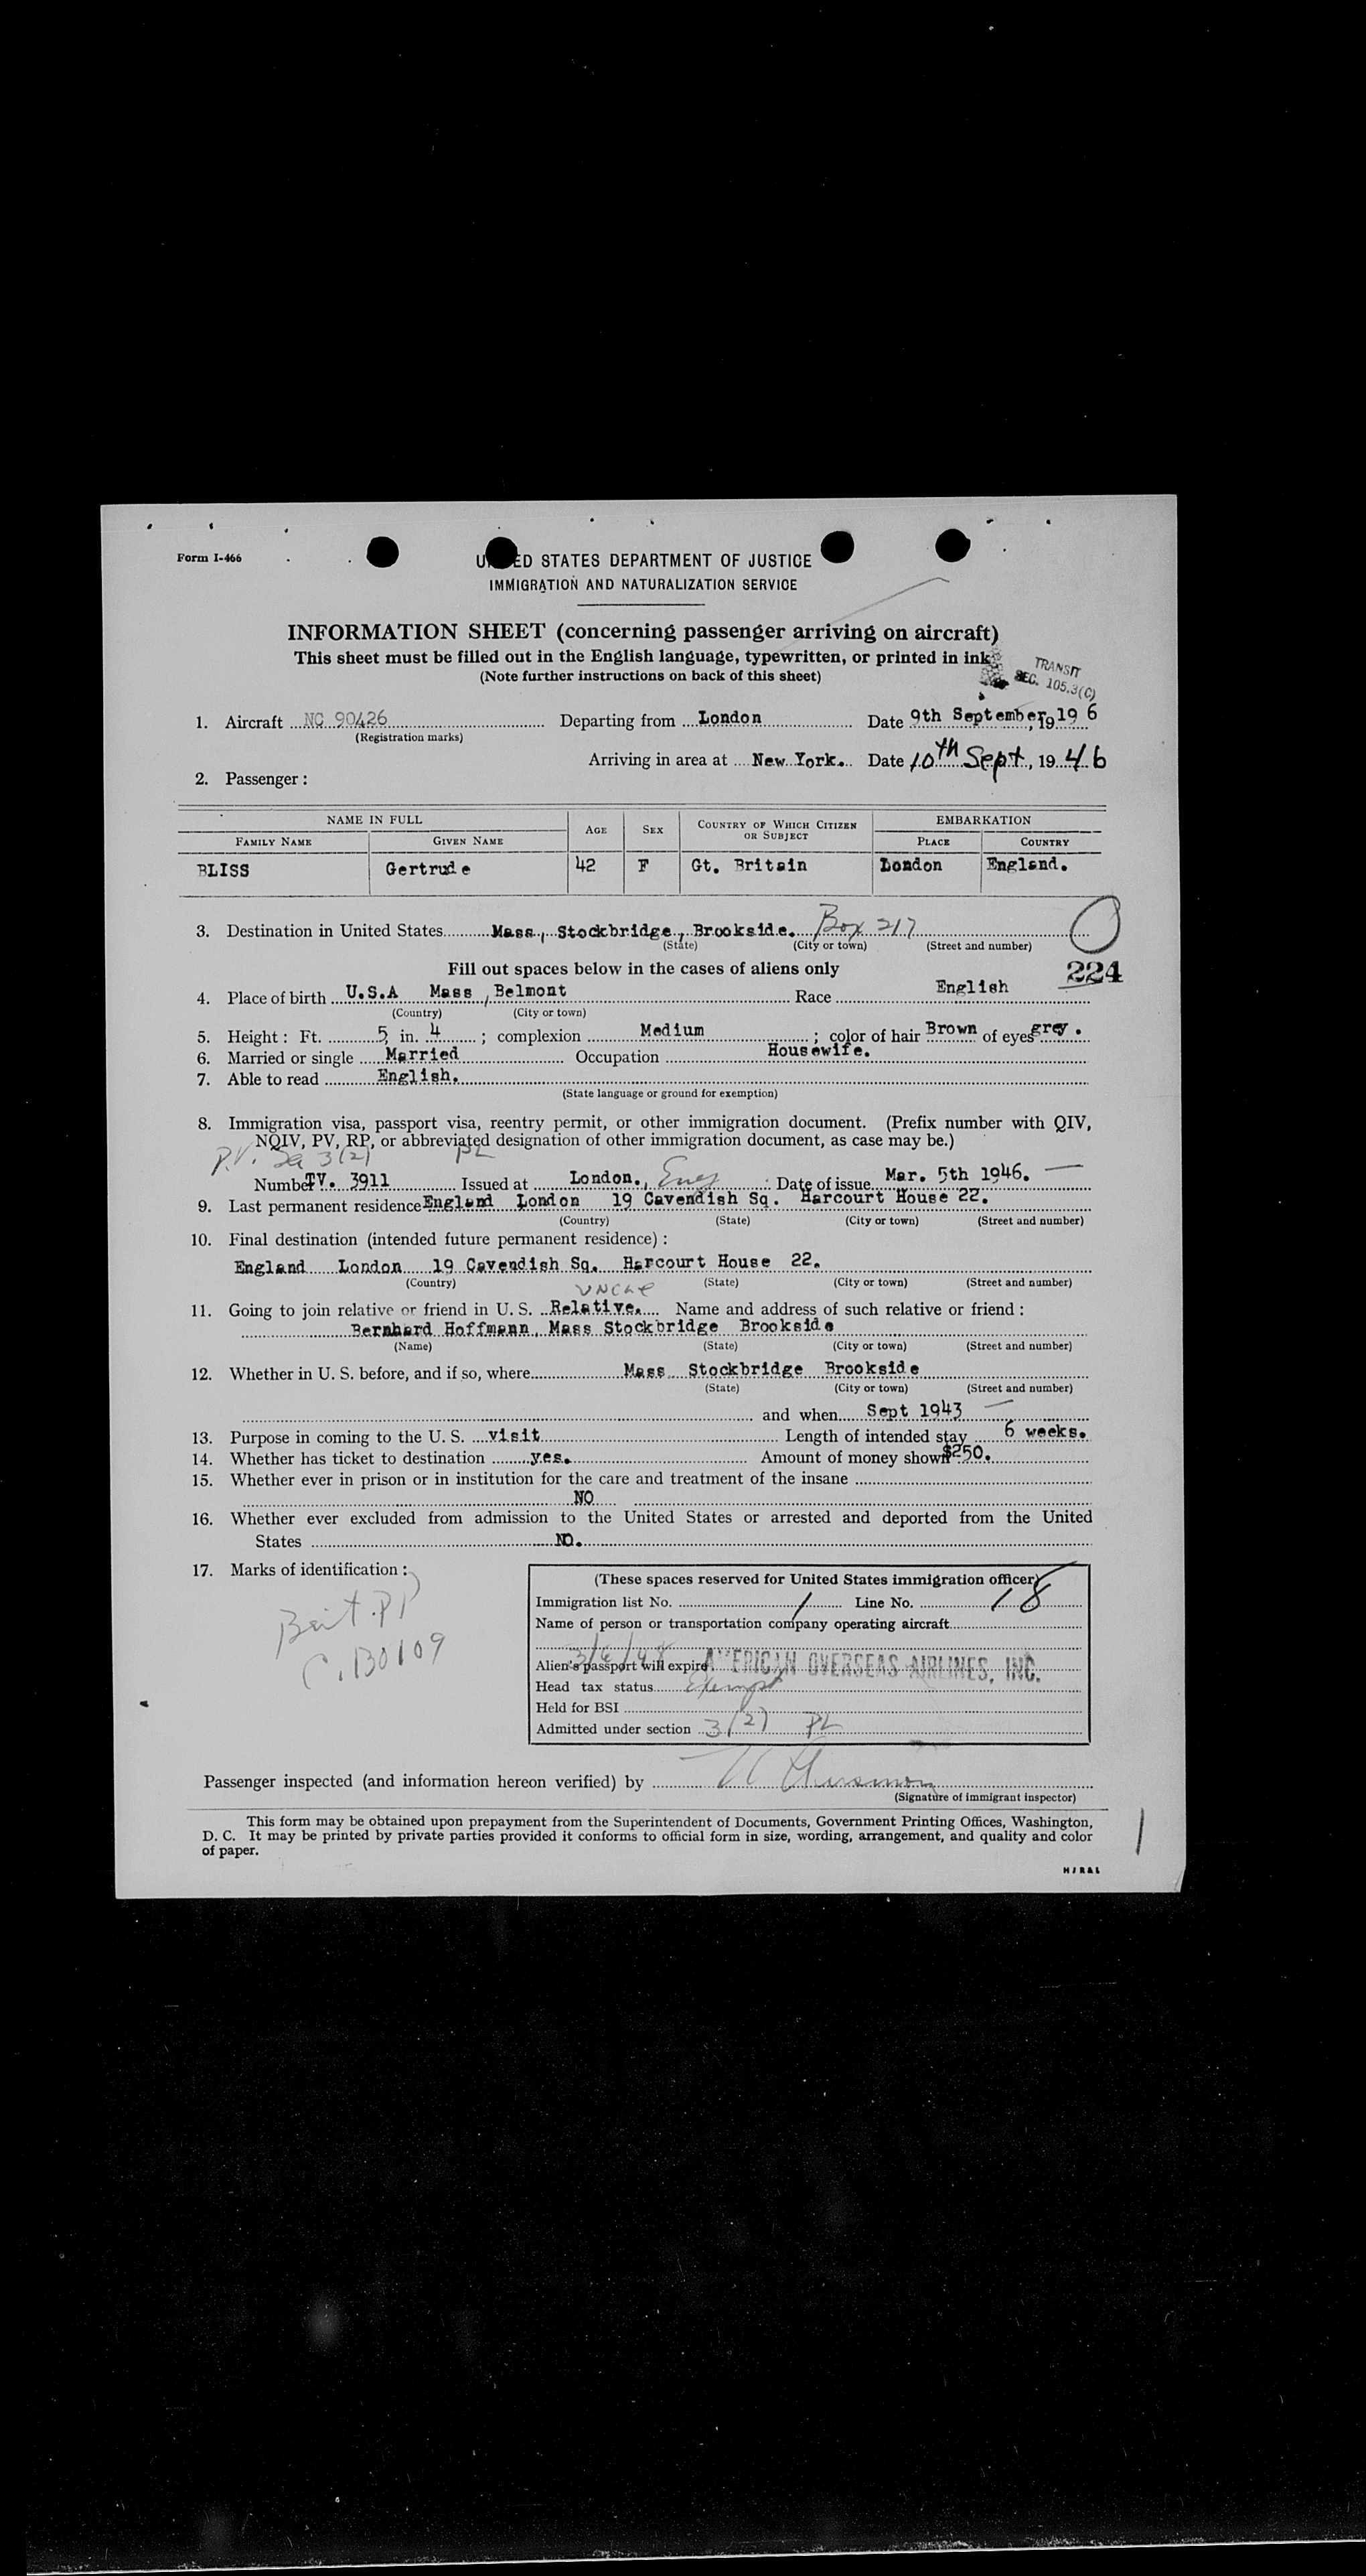 Form I-466
UNITED STATES DEPARTMENT OF JUSTICE
IMMIGRATION AND NATURALIZATION SERVICE
INFORMATION SHEET (concerning passenger arriving on aircraft)
This sheet must be filled out in the English language, typewritten, or printed in ink.
(Note further instructions on back of this sheet)
TRANSIT
SEC. 105.3(C)
1. Aircraft NC 90426 Departing from London Date 9th September, 19 6
(Registration marks)
Arriving in area at New York. Date 10th Sept, 1946
2. Passenger :
NAME IN FULL AGE SEX COUNTRY OF WHICH CITIZEN OR SUBJECT EMBARKATION
FAMILY NAME GIVEN NAME PLACE COUNTRY
BLISS Gertrude 42 F Gt. Britain London England.
3. Destination in United States Mass, Stockbridge, Brookside. Box 217
(State) (City or town) (Street and number)
224
Fill out spaces below in the cases of aliens only
4. Place of birth U.S.A Mass, Belmont Race English
(Country) (City or town)
5. Height : Ft. 5 in. 4 ; complexion Medium ; color of hair Brown of eyes grey.
6. Married or single Married Occupation Housewife.
7. Able to read English.
(State language or ground for exemption)
8. Immigration visa, passport visa, reentry permit, or other immigration document. (Prefix number with QIV,
NQIV, PV, RP, or abbreviated designation of other immigration document, as case may be.)
P.V. 3(2) PL
Number TV. 3911 Issued at London., Eng Date of issue Mar. 5th 1946.
9. Last permanent residence England London 19 Cavendish Sq. Harcourt House 22.
(Country) (State) (City or town) (Street and number)
10. Final destination (intended future permanent residence) :
England London 19 Cavendish Sq. Harcourt House 22.
(Country) (State) (City or town) (Street and number)
UNCLE
11. Going to join relative or friend in U. S. Relative. Name and address of such relative or friend :
Bernhard Hoffmann, Mass Stockbridge Brookside
(Name) (State) (City or town) (Street and number)
12. Whether in U. S. before, and if so, where Mass Stockbridge Brookside
(State) (City or town) (Street and number)
and when Sept 1943
13. Purpose in coming to the U. S. visit Length of intended stay 6 weeks.
14. Whether has ticket to destination yes. Amount of money shown $250.
15. Whether ever in prison or in institution for the care and treatment of the insane
NO
16. Whether ever excluded from admission to the United States or arrested and deported from the United
States NO.
17. Marks of identification :
Brit. PP
C. 130109
(These spaces reserved for United States immigration officer)
Immigration list No. 1 Line No. 18
Name of person or transportation company operating aircraft
AMERICAN OVERSEAS AIRLINES, INC.
Alien's passport will expire 3/6/48
Head tax status Exempt
Held for BSI
Admitted under section 3(2) PL
Passenger inspected (and information hereon verified) by
(Signature of immigrant inspector)
This form may be obtained upon prepayment from the Superintendent of Documents, Government Printing Offices, Washington,
D. C. It may be printed by private parties provided it conforms to official form in size, wording, arrangement, and quality and color
of paper.
H/R&L